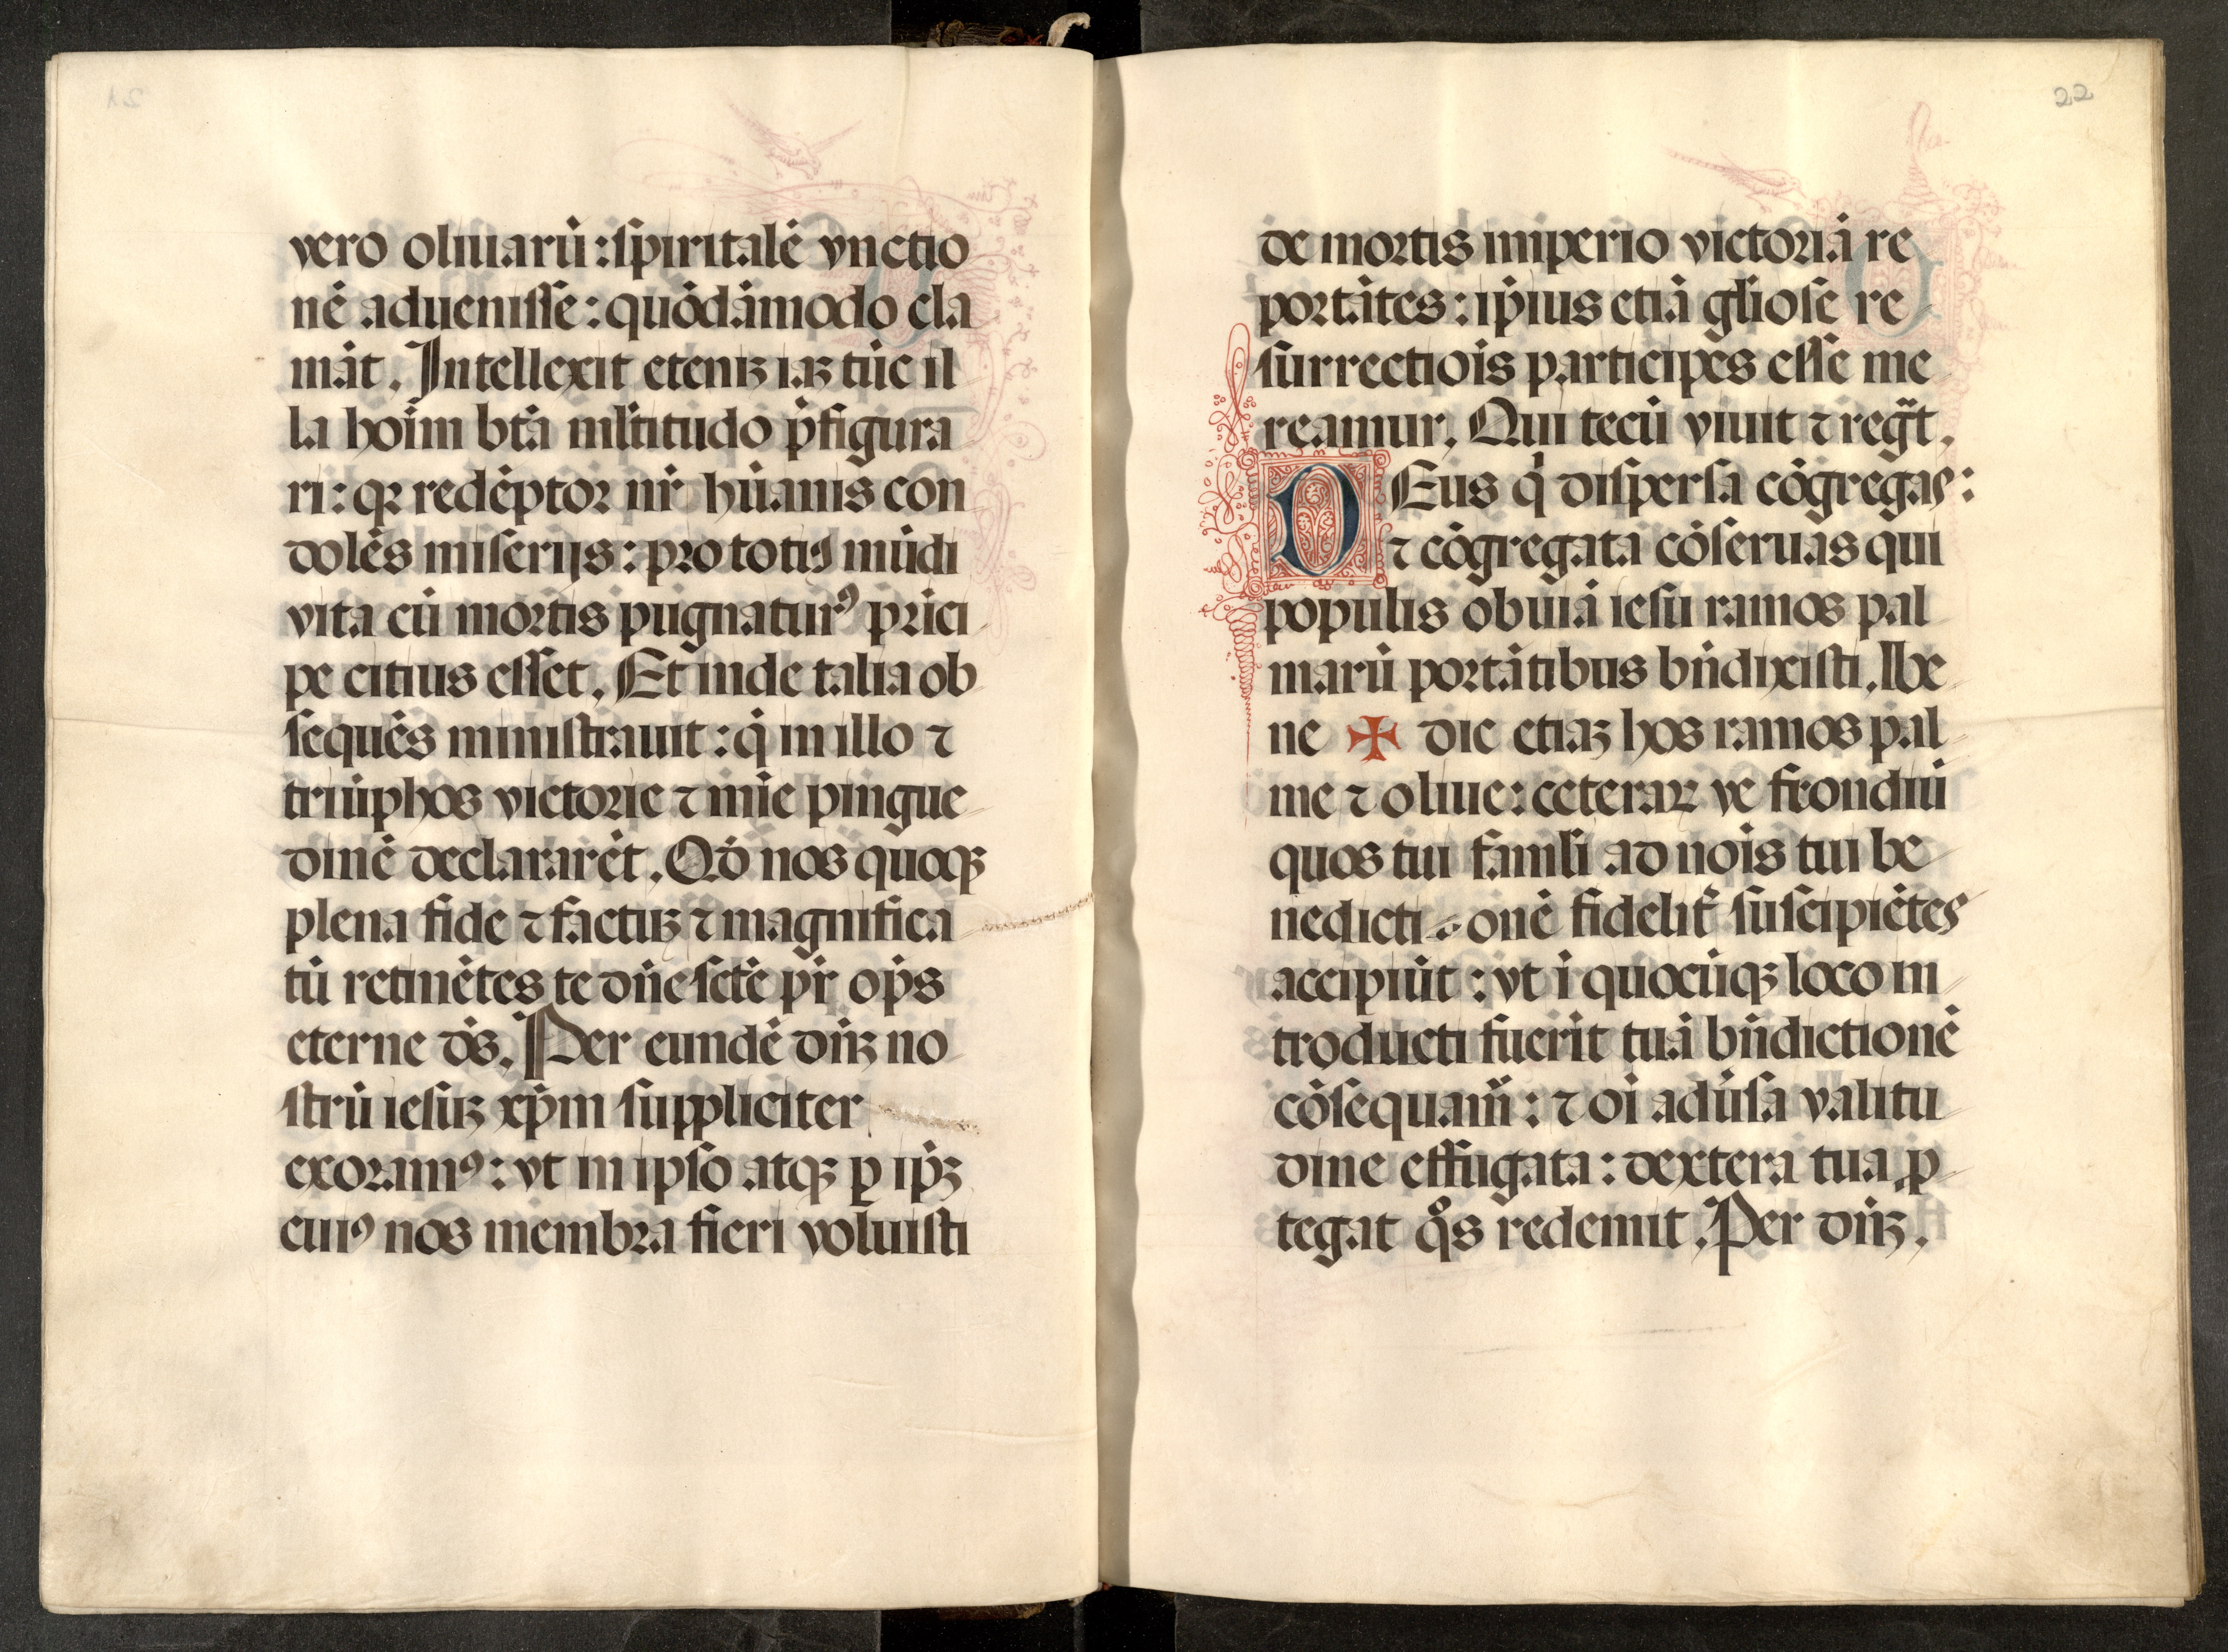 vero oliuarū : spiritalē vnctio
nē aduenisse : quōdāmodo cla
māt . Intellexit eteniʒ iaʒ tūc il
la hoīm bt̄a ml̄titudo p̄figura
ri : qꝛ redēptor nr̄ hūanis con
dolēs miserijs : pro totiꝰ mūdi
vita cū mortis pugnaturꝰ prīci
pe citius esset . Et inde talia ob
sequēs ministrauit : q̄ in illo ⁊
triūphos victorie ⁊ mīe pingue
dinē declararēt . Qd̄ nos quoqʒ
plena fide ⁊ factuʒ ⁊ magnifica
tū retinētes te dn̄e sctē pr̄ op̄s
eterne ds̄ . Per eundē dn̄ʒ no
strū iesuʒ xp̄m suppliciter
exoramꝰ : vt in ipso atqʒ ꝑ ip̄ʒ
cuiꝰ nos membra fieri voluisti
22
de mortis imperio victoriā re
portātes : ip̄ius etiā gl̄iose re
surrectiōis participes esse me
reamur . Qui tecū viuit ⁊ regt̄ .
DEus q̇ dispersa cōgregas :
⁊ cōgregata cōseruas qui
populis obuiā iesu ramos pal
marū portātibus bn̄dixisti . be
ne ✠ dic etiaʒ hos ramos pal
me ⁊ oliue : ceteraꝝ ve frondiū
quos tui famli ad nois tui be
nedicti onē fidelit̄ suscipiētes
accipiūt : vt ī quocūqʒ loco in
troducti fuerīt tuā bn̄dictionē
cōsequam̄ : ⁊ oī adūsa valitu
dine effugata : dextera tua ꝓ
tegat qͦs redemit . Per dn̄ʒ .